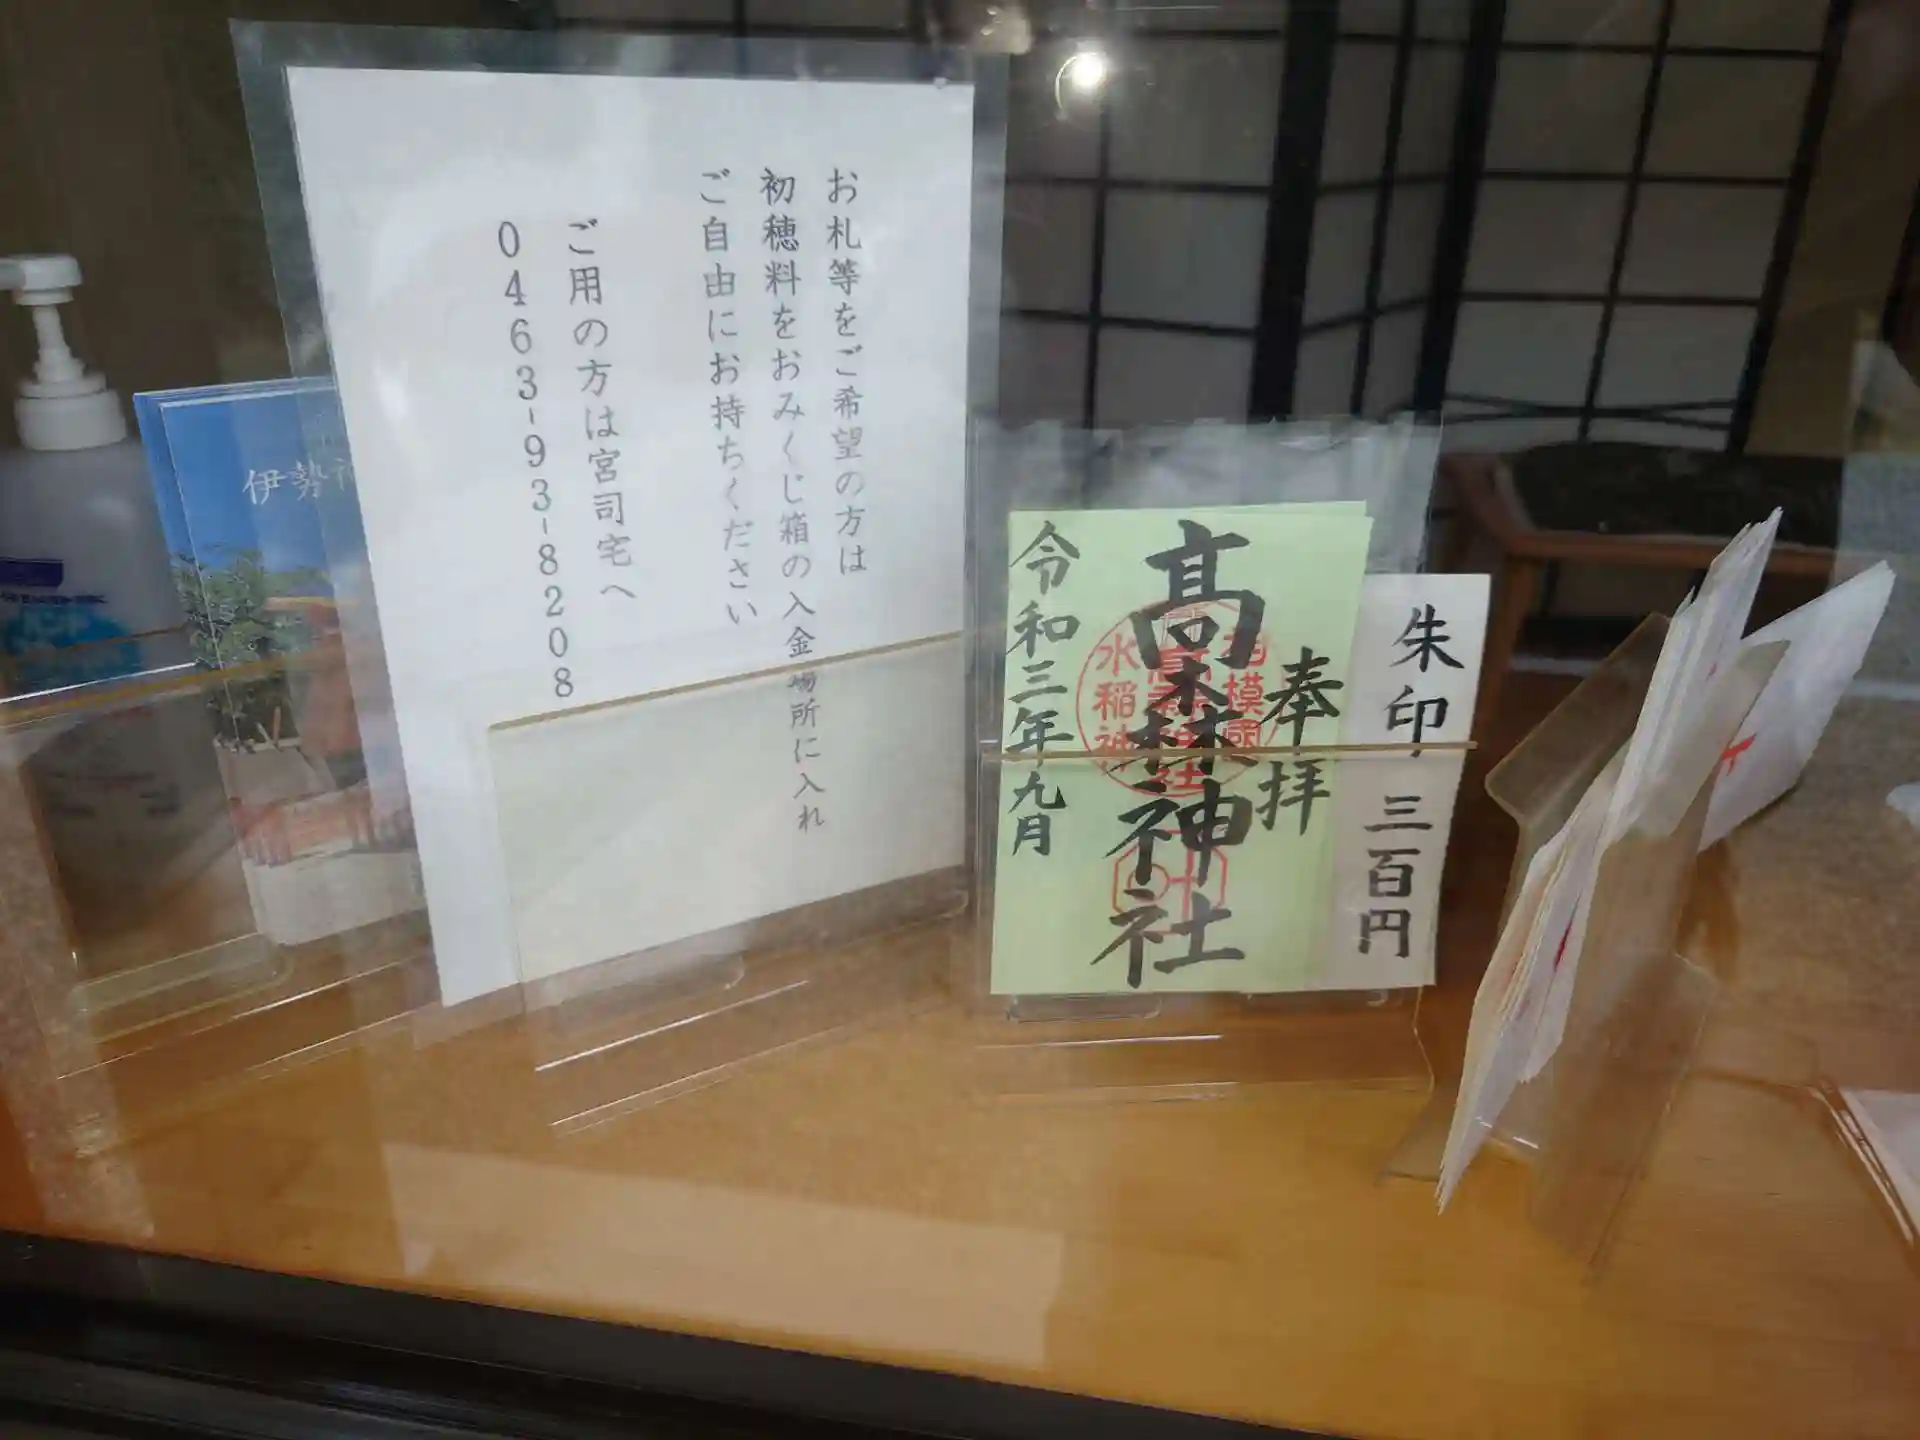 お札等をご希望の方は
初穂料をおみくじ箱の入金場所に入れ
ご自由にお持ちください
ご用の方は宮司宅へ
0463-93-8208
伊勢
朱印 三百円
奉拝
髙森神社
令和三年九月